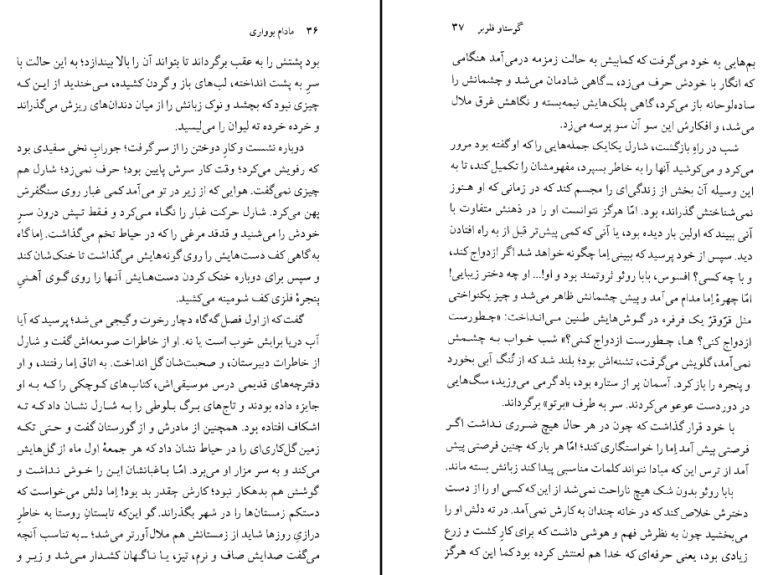 ۳۶ مادام بوواری
بود پشتش را به عقب برگرداند تا بتواند آن را بالا بیندازد؛ به این حالت با
سرِ به پشت انداخته، لب‌های باز و گردن کشیده، می‌خندید از این‌که
چیزی نبود که بچشد و نوک زبانش را از میان دندان‌های ریزش می‌گذراند
و خرده خرده ته لیوان را می‌لیسید.
دوباره نشست و کارِ دوختن را از سر گرفت؛ جورابِ نخی سفیدی بود
که رفویش می‌کرد؛ وقت کار سرش پایین بود؛ حرف نمی‌زد؛ شارل هم
چیزی نمی‌گفت. هوایی که از زیر در تو می‌آمد کمی غبار روی سنگفرش
پهن می‌کرد. شارل حرکت غبار را نگاه می‌کرد و فقط تپش درون سرِ
خودش را می‌شنید و قدقد مرغی را که در حیاط تخم می‌گذاشت. اِما گاه
به‌گاهی کف دست‌هایش را روی گونه‌هایش می‌گذاشت تا خنک‌شان کند
و سپس برای دوباره خنک کردن دست‌هایش آنها را روی گوی آهنیِ
پنجرهٔ فلزی کف شومینه می‌کشید.
گفت که از اول فصل گه‌گاه دچار رخوت و گیجی می‌شد؛ پرسید که آیا
آب دریا برایش خوب است یا نه. او از خاطرات صومعه‌اش گفت و شارل
از خاطرات دبیرستان، و صحبت‌شان گل انداخت. به اتاق اِما رفتند، و او
دفترچه‌های قدیمی درس موسیقی‌اش، کتاب‌های کوچکی را که به او
جایزه داده بودند و تاج‌های برگ بلوطی را به شارل نشان داد که ته
اشکاف افتاده بود. همچنین از مادرش و از گورستان گفت و حتی تکه
زمین گل‌کاری‌ای را در حیاط نشان داد که هر جمعهٔ اول ماه از گل‌هایش
می‌کند و به سر مزار او می‌برد. امّا باغبانشان این را خوش نداشت و
گوشش هم بدهکار نبود؛ کارش چقدر بد بود! اِما دلش می‌خواست که
دستکم زمستان‌ها را در شهر بگذراند. گو این‌که تابستانِ روستا به خاطرِ
درازیِ روزها شاید از زمستانش هم ملال‌آورتر می‌شد؛ ــ به تناسب آنچه
می‌گفت صدایش صاف و نرم، تیز، یا ناگهان کشدار می‌شد و زیر و
گوستاو فلوبر ۳۷
بم‌هایی به خود می‌گرفت که کمابیش به حالت زمزمه درمی‌آمد هنگامی
که انگار با خودش حرف می‌زد، ــ گاهی شادمان می‌شد و چشمانش را
ساده‌لوحانه باز می‌کرد، گاهی پلک‌هایش نیمه‌بسته و نگاهش غرق ملال
می‌شد، و افکارش این سو آن سو پرسه می‌زد.
شب در راهِ بازگشت، شارل یکایک جمله‌هایی را که او گفته بود مرور
می‌کرد و می‌کوشید آنها را به خاطر بسپرد، مفهومشان را تکمیل کند، تا به
این وسیله آن بخش از زندگی‌ای را مجسم کند که در زمانی که او هنوز
نمی‌شناختش گذرانده بود. امّا هرگز نتوانست او را در ذهنش متفاوت با
آنی ببیند که اولین بار دیده بود، یا آنی که کمی پیش‌تر قبل از به راه افتادن
دید. سپس از خود پرسید که ببینی اِما چگونه خواهد شد اگر ازدواج کند،
و با چه کسی؟ افسوس، بابا روئو ثروتمند بود و او!... او چه دختر زیبایی!
امّا چهرهٔ اِما مدام می‌آمد و پیش چشمانش ظاهر می‌شد و چیز یکنواختی
مثل قِرقِر یک فرفره در گوش‌هایش طنین می‌انداخت: «چطورست
ازدواج کنی؟ ها، چطورست ازدواج کنی؟» شب خواب به چشمش
نمی‌آمد، گلویش می‌گرفت، تشنه‌اش بود؛ بلند شد که از تُنگ آبی بخورد
و پنجره را باز کرد. آسمان پر از ستاره بود، باد گرمی می‌وزید، سگ‌هایی
در دوردست عوعو می‌کردند. سر به طرف «برتو» برگرداند.
با خود قرار گذاشت که چون در هر حال هیچ ضرری نداشت اگر
فرصتی پیش آمد اِما را خواستگاری کند؛ امّا هر بار که چنین فرصتی پیش
آمد از ترس این که مبادا نتواند کلمات مناسبی پیدا کند زبانش بسته ماند.
بابا روئو بدون شک هیچ ناراحت نمی‌شد از این‌که کسی او را از دست
دخترش خلاص کند که در خانه چندان به کارش نمی‌آمد. در ته دلش او را
می‌بخشید چون به نظرش فهم و هوشی داشت که برای کارِ کشت و زرع
زیادی بود، یعنی حرفه‌ای که خدا هم لعنتش کرده بود کما این که هرگز